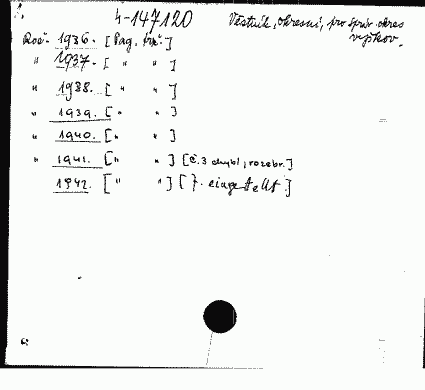 1.
4-147120
Věstník, okresní, pro správ. okres
vyškov.
Roč. 1936. [Pag. prů.]
" 1937. [ " " ]
" 1938. [ " " ]
" 1939. [ " " ]
" 1940. [ " " ]
" 1941. [ " " ] [č. 3 chybí, rozebr.]
1942. [ " " ] [7. eingestellt]